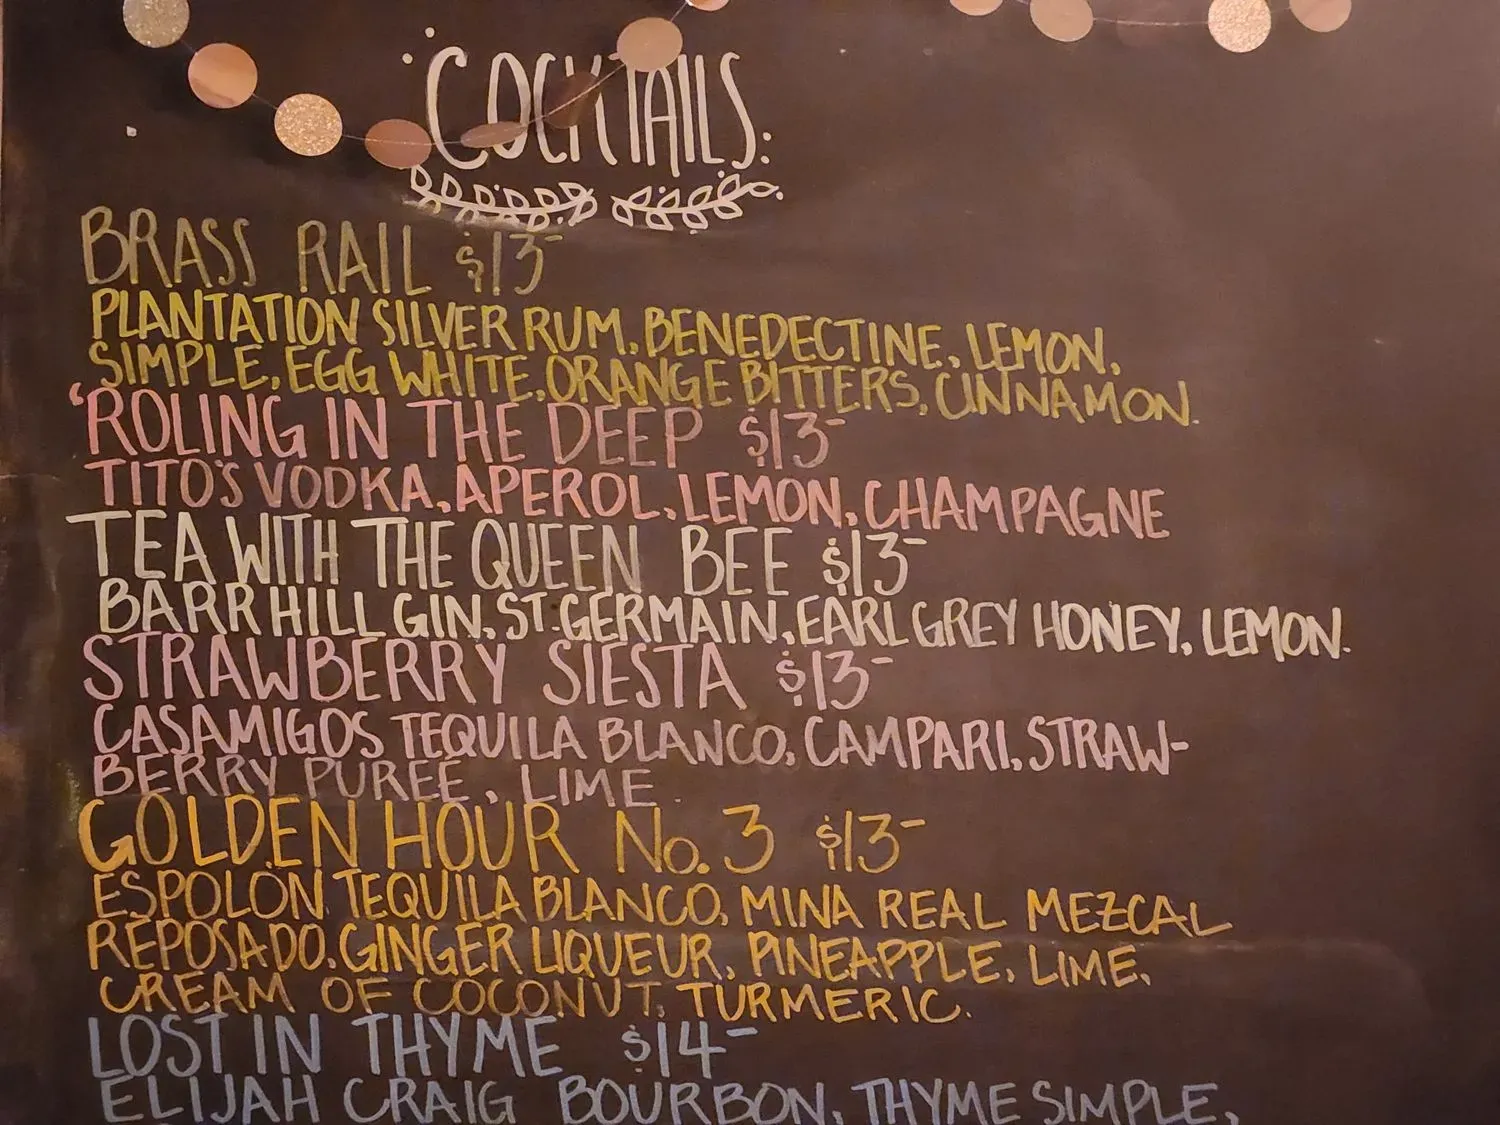 COCKTAILS
BRASS RAIL $13-
PLANTATION SILVER RUM, BENEDECTINE, LEMON,
SIMPLE, EGG WHITE, ORANGE BITTERS, CINNAMON.
'ROLING IN THE DEEP $13-
TITO'S VODKA, APEROL, LEMON, CHAMPAGNE
TEA WITH THE QUEEN BEE $13-
BARR HILL GIN, ST. GERMAIN, EARL GREY HONEY, LEMON.
STRAWBERRY SIESTA $13-
CASAMIGOS TEQUILA BLANCO, CAMPARI, STRAW-
BERRY PUREE, LIME.
GOLDEN HOUR No. 3 $13-
ESPOLÒN TEQUILA BLANCO, MINA REAL MEZCAL
REPOSADO, GINGER LIQUEUR, PINEAPPLE, LIME,
CREAM OF COCONUT, TURMERIC.
LOST IN THYME $14-
ELIJAH CRAIG BOURBON, THYME SIMPLE,